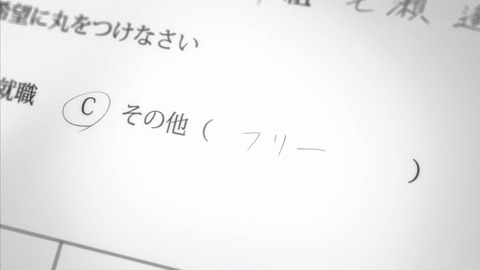 組
希望に丸をつけなさい
就職 C その他( フリー )